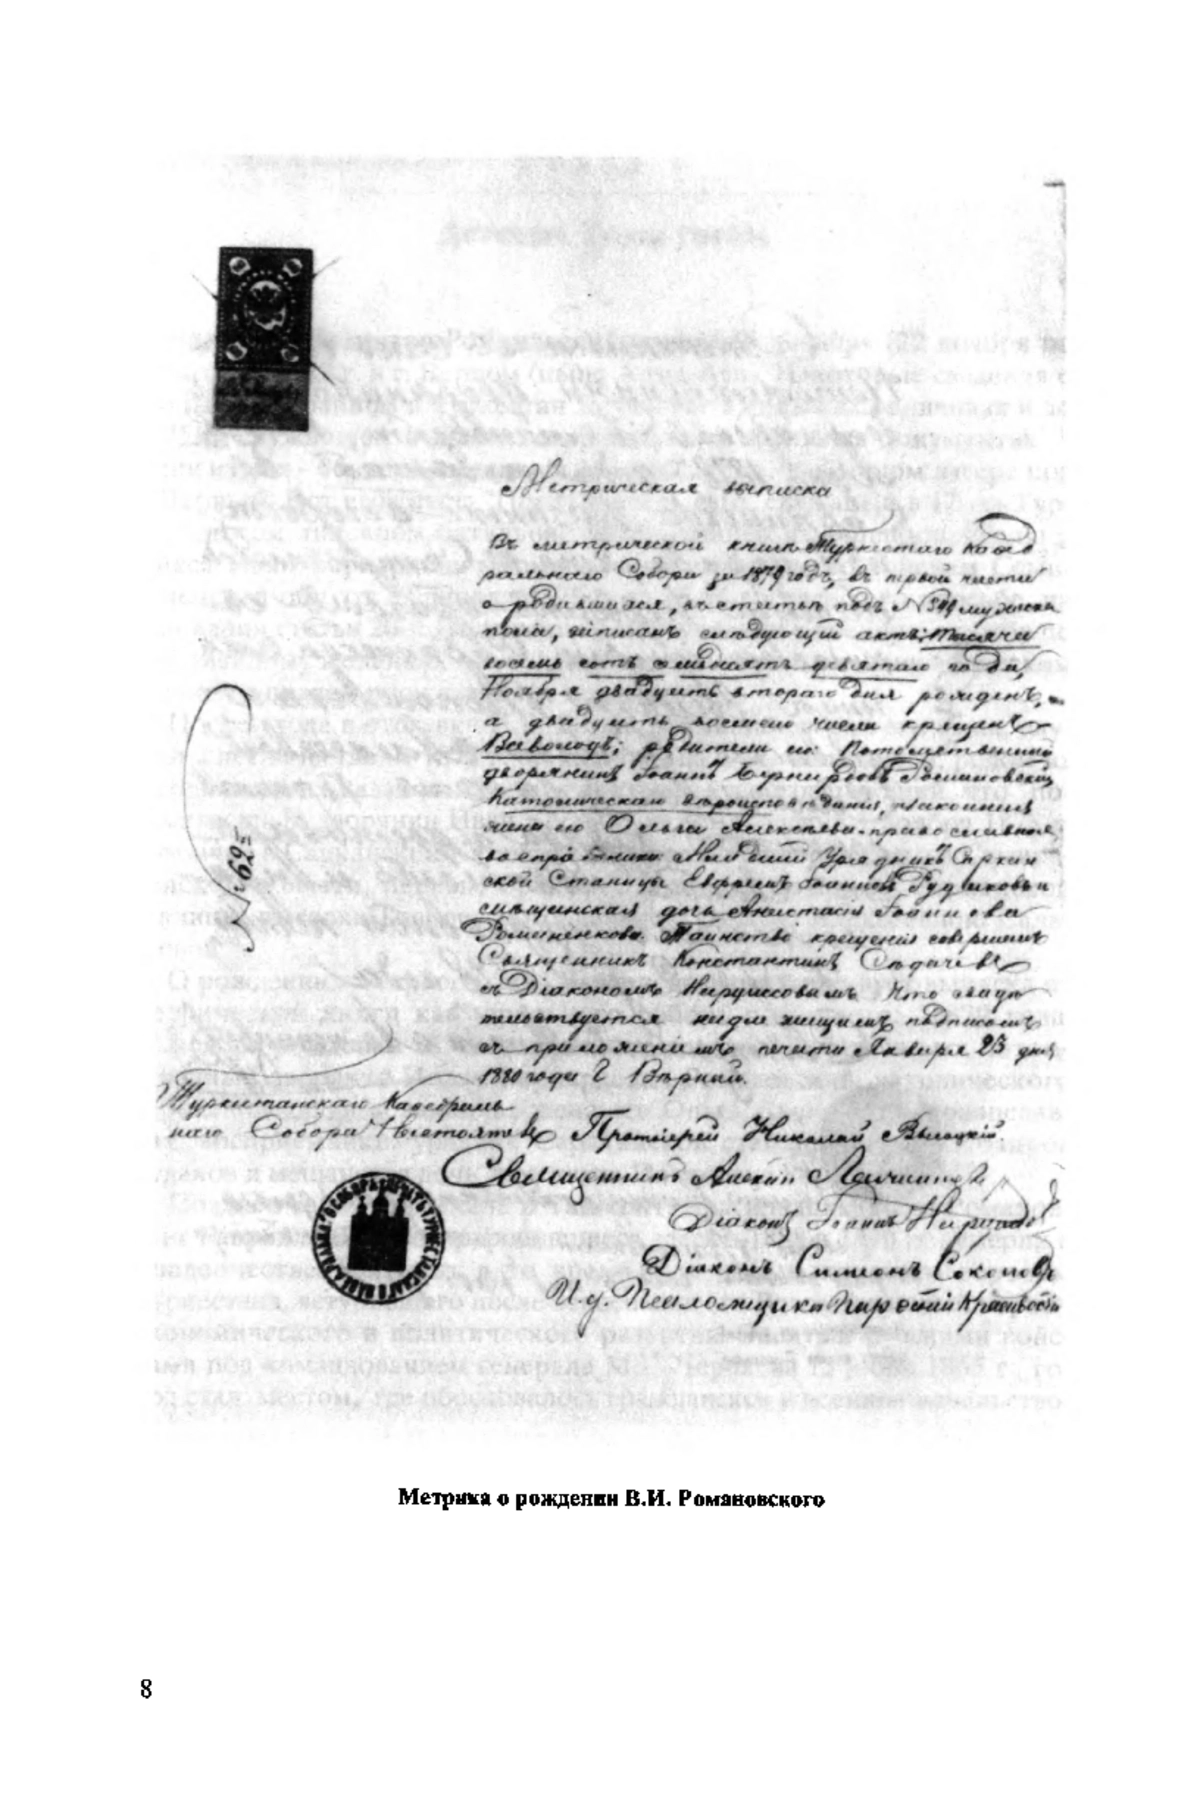 Метрическая выписка
Въ метрической книгѣ Туркестаго Кафед
ральнаго Собора за 1879 годъ, въ первой части
о родившихся, въ статьѣ подъ № мужска
пола, записанъ слѣдующій актъ: Тысяча
восемь сотъ семьдесятъ девятаго года,
Ноября двадцать втораго дня рожденъ,
а двадцать восьмого числа крещенъ
Всеволодъ; родители его: Потомственный
дворянинъ Іоаннъ Романовскій,
Католическаго вѣроисповѣданія, и законная
жена его Ольга Алексѣева православная,
воспріемники: Младшій Урядникъ
ской Станицы Евфремъ Іоанновъ Рудаковъ и
мѣщанская дочь Анастасія Іоаннова
Романенкова. Таинство крещенія совершилъ
Священникъ Константинъ
съ Діакономъ Нарциссовымъ. Что свидѣ
тельствуется надлежащимъ подписомъ
съ приложеніемъ печати Января 23 дня
1880 года г. Вѣрный.
№ 62
Туркестанскаго Кафедраль
наго Собора Настоятель Протоіерей Николай Высоцкій.
Священникъ Алексій
Діаконъ Іоаннъ Нарциссовъ
Діаконъ Симеонъ Соколовъ
И. д. Псаломщика
Метрика о рождении В.И. Романовского
8